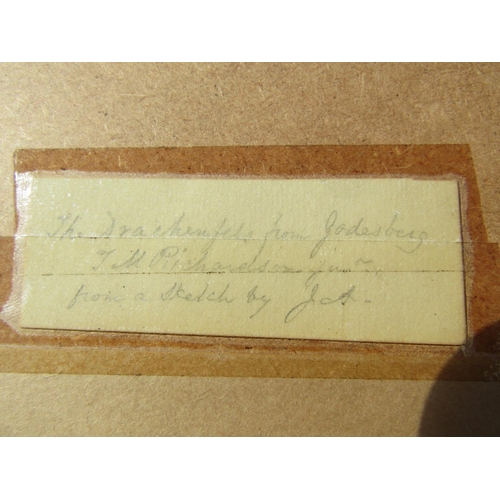 The Drachenfels from Godesberg
T. M. Richardson junr.
from a sketch by J.A.